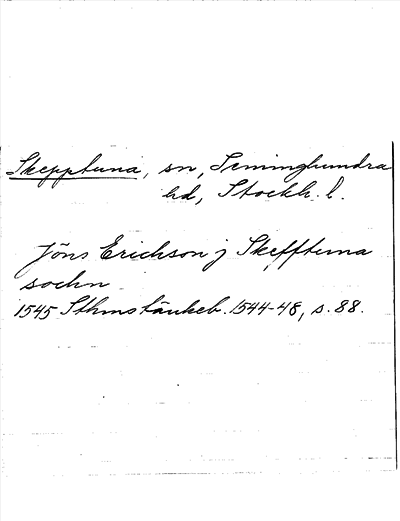 Skepptuna, sn, Seminghundra
hd, Stockh. l.
Jöns Erichson j Skefftuna
sochn
1545 Sthms tänkeb. 1544-48, s. 88.